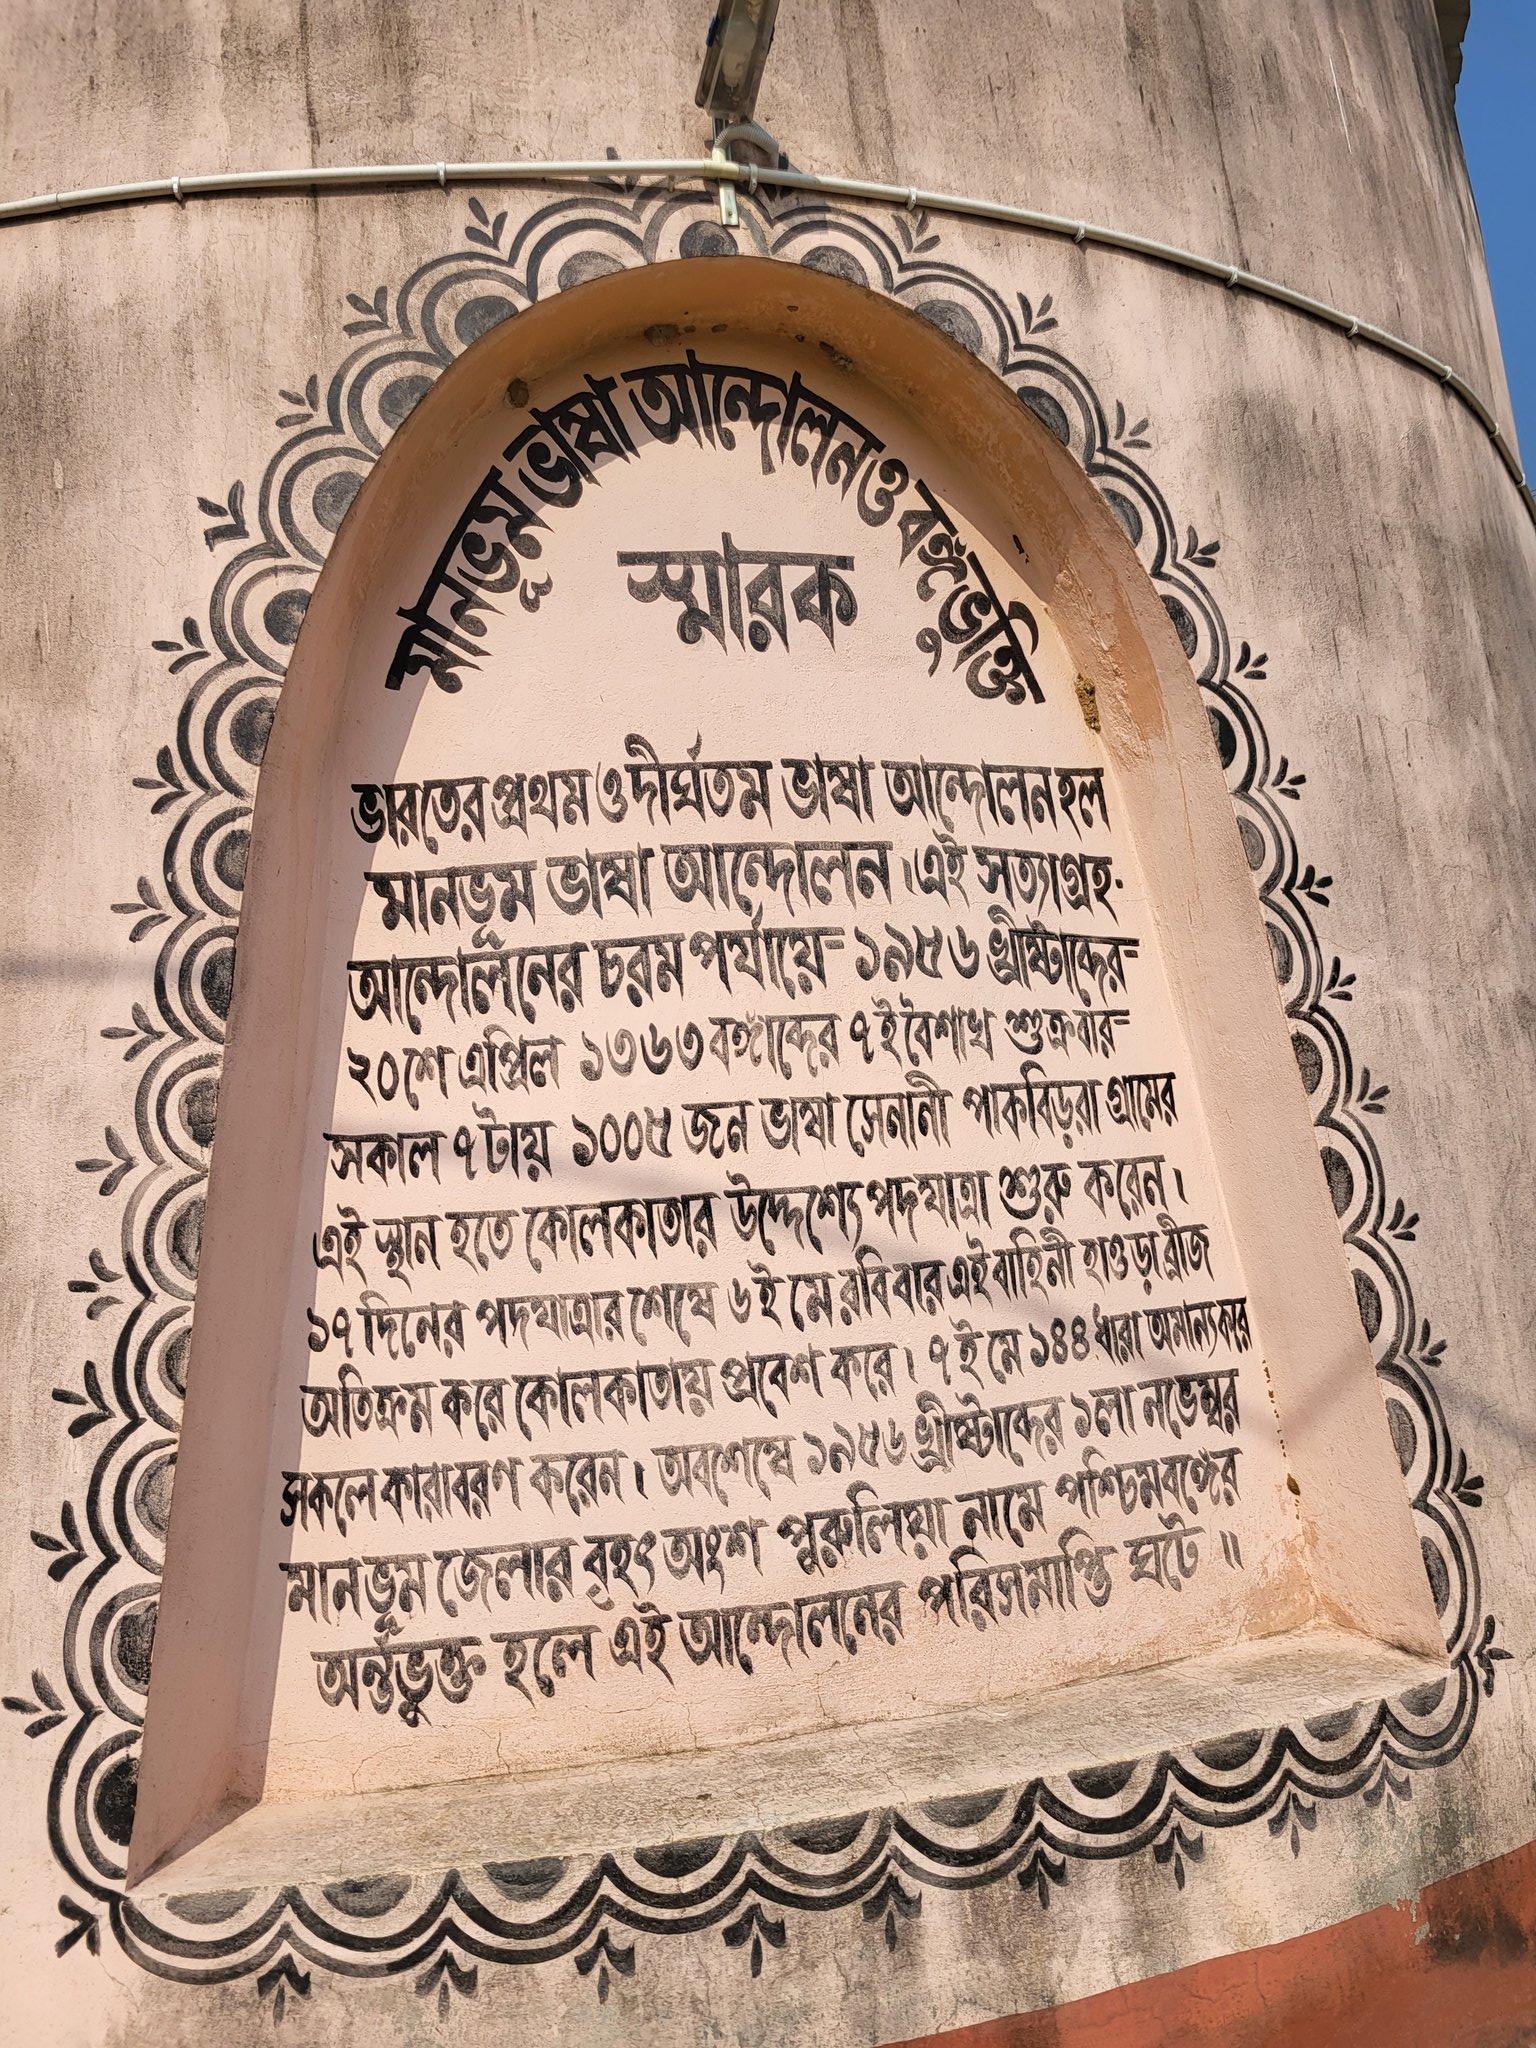 মানভূম ভাষা আন্দোলন ও বঙ্গভুক্তি
স্মারক
ভারতের প্রথম ও দীর্ঘতম ভাষা আন্দোলন হল
মানভূম ভাষা আন্দোলন। এই সত্যাগ্রহ-
আন্দোলনের চরম পর্যায়ে- ১৯৫৬ খ্রীষ্টাব্দের-
২০শে এপ্রিল ১৩৬৩ বঙ্গাব্দের ৭ই বৈশাখ শুক্রবার-
সকাল ৭টায় ১০০৫ জন ভাষা সেনানী পাকবিড়রা গ্রামের
এই স্থান হতে কোলকাতার উদ্দেশ্যে পদযাত্রা শুরু করেন।
১৭ দিনের পদযাত্রার শেষে ৬ই মে রবিবার এই বাহিনী হাওড়া ব্রীজ
অতিক্রম করে কোলকাতায় প্রবেশ করে। ৭ই মে ১৪৪ ধারা অমান্যকরে
সকলে কারাবরণ করেন। অবশেষে ১৯৫৬ খ্রীষ্টাব্দের ১লা নভেম্বর
মানভূম জেলার বৃহৎ অংশ পুরুলিয়া নামে পশ্চিমবঙ্গের
অর্ন্তভুক্ত হলে এই আন্দোলনের পরিসমাপ্তি ঘটে ॥